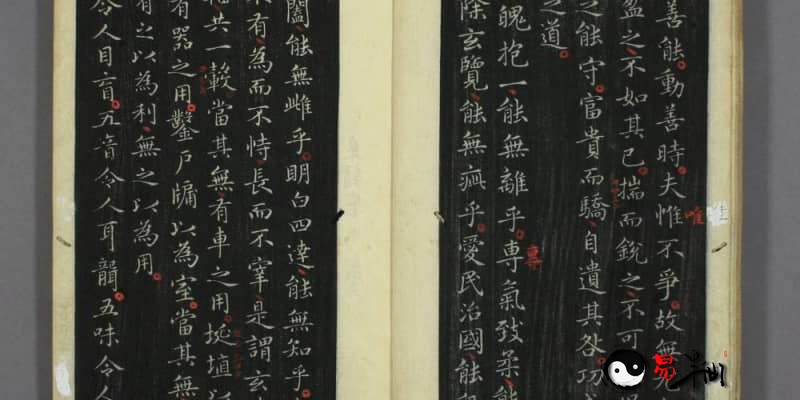 善能動善時夫惟不爭故無尤
盈之不如其已揣而銳之不可
之能守富貴而驕自遺其咎功
之道
魄抱一能無離乎專氣致柔能
除玄覽能無疵乎愛民治國能
闔能無雌乎明白四達能無知乎
有為而不恃長而不宰是謂玄
共一轂當其無有車之用埏埴以
有器之用鑿戶牖以為室當其無
有之以為利無之以為用
令人目盲五音令人耳聾五味令人
唯
專
易